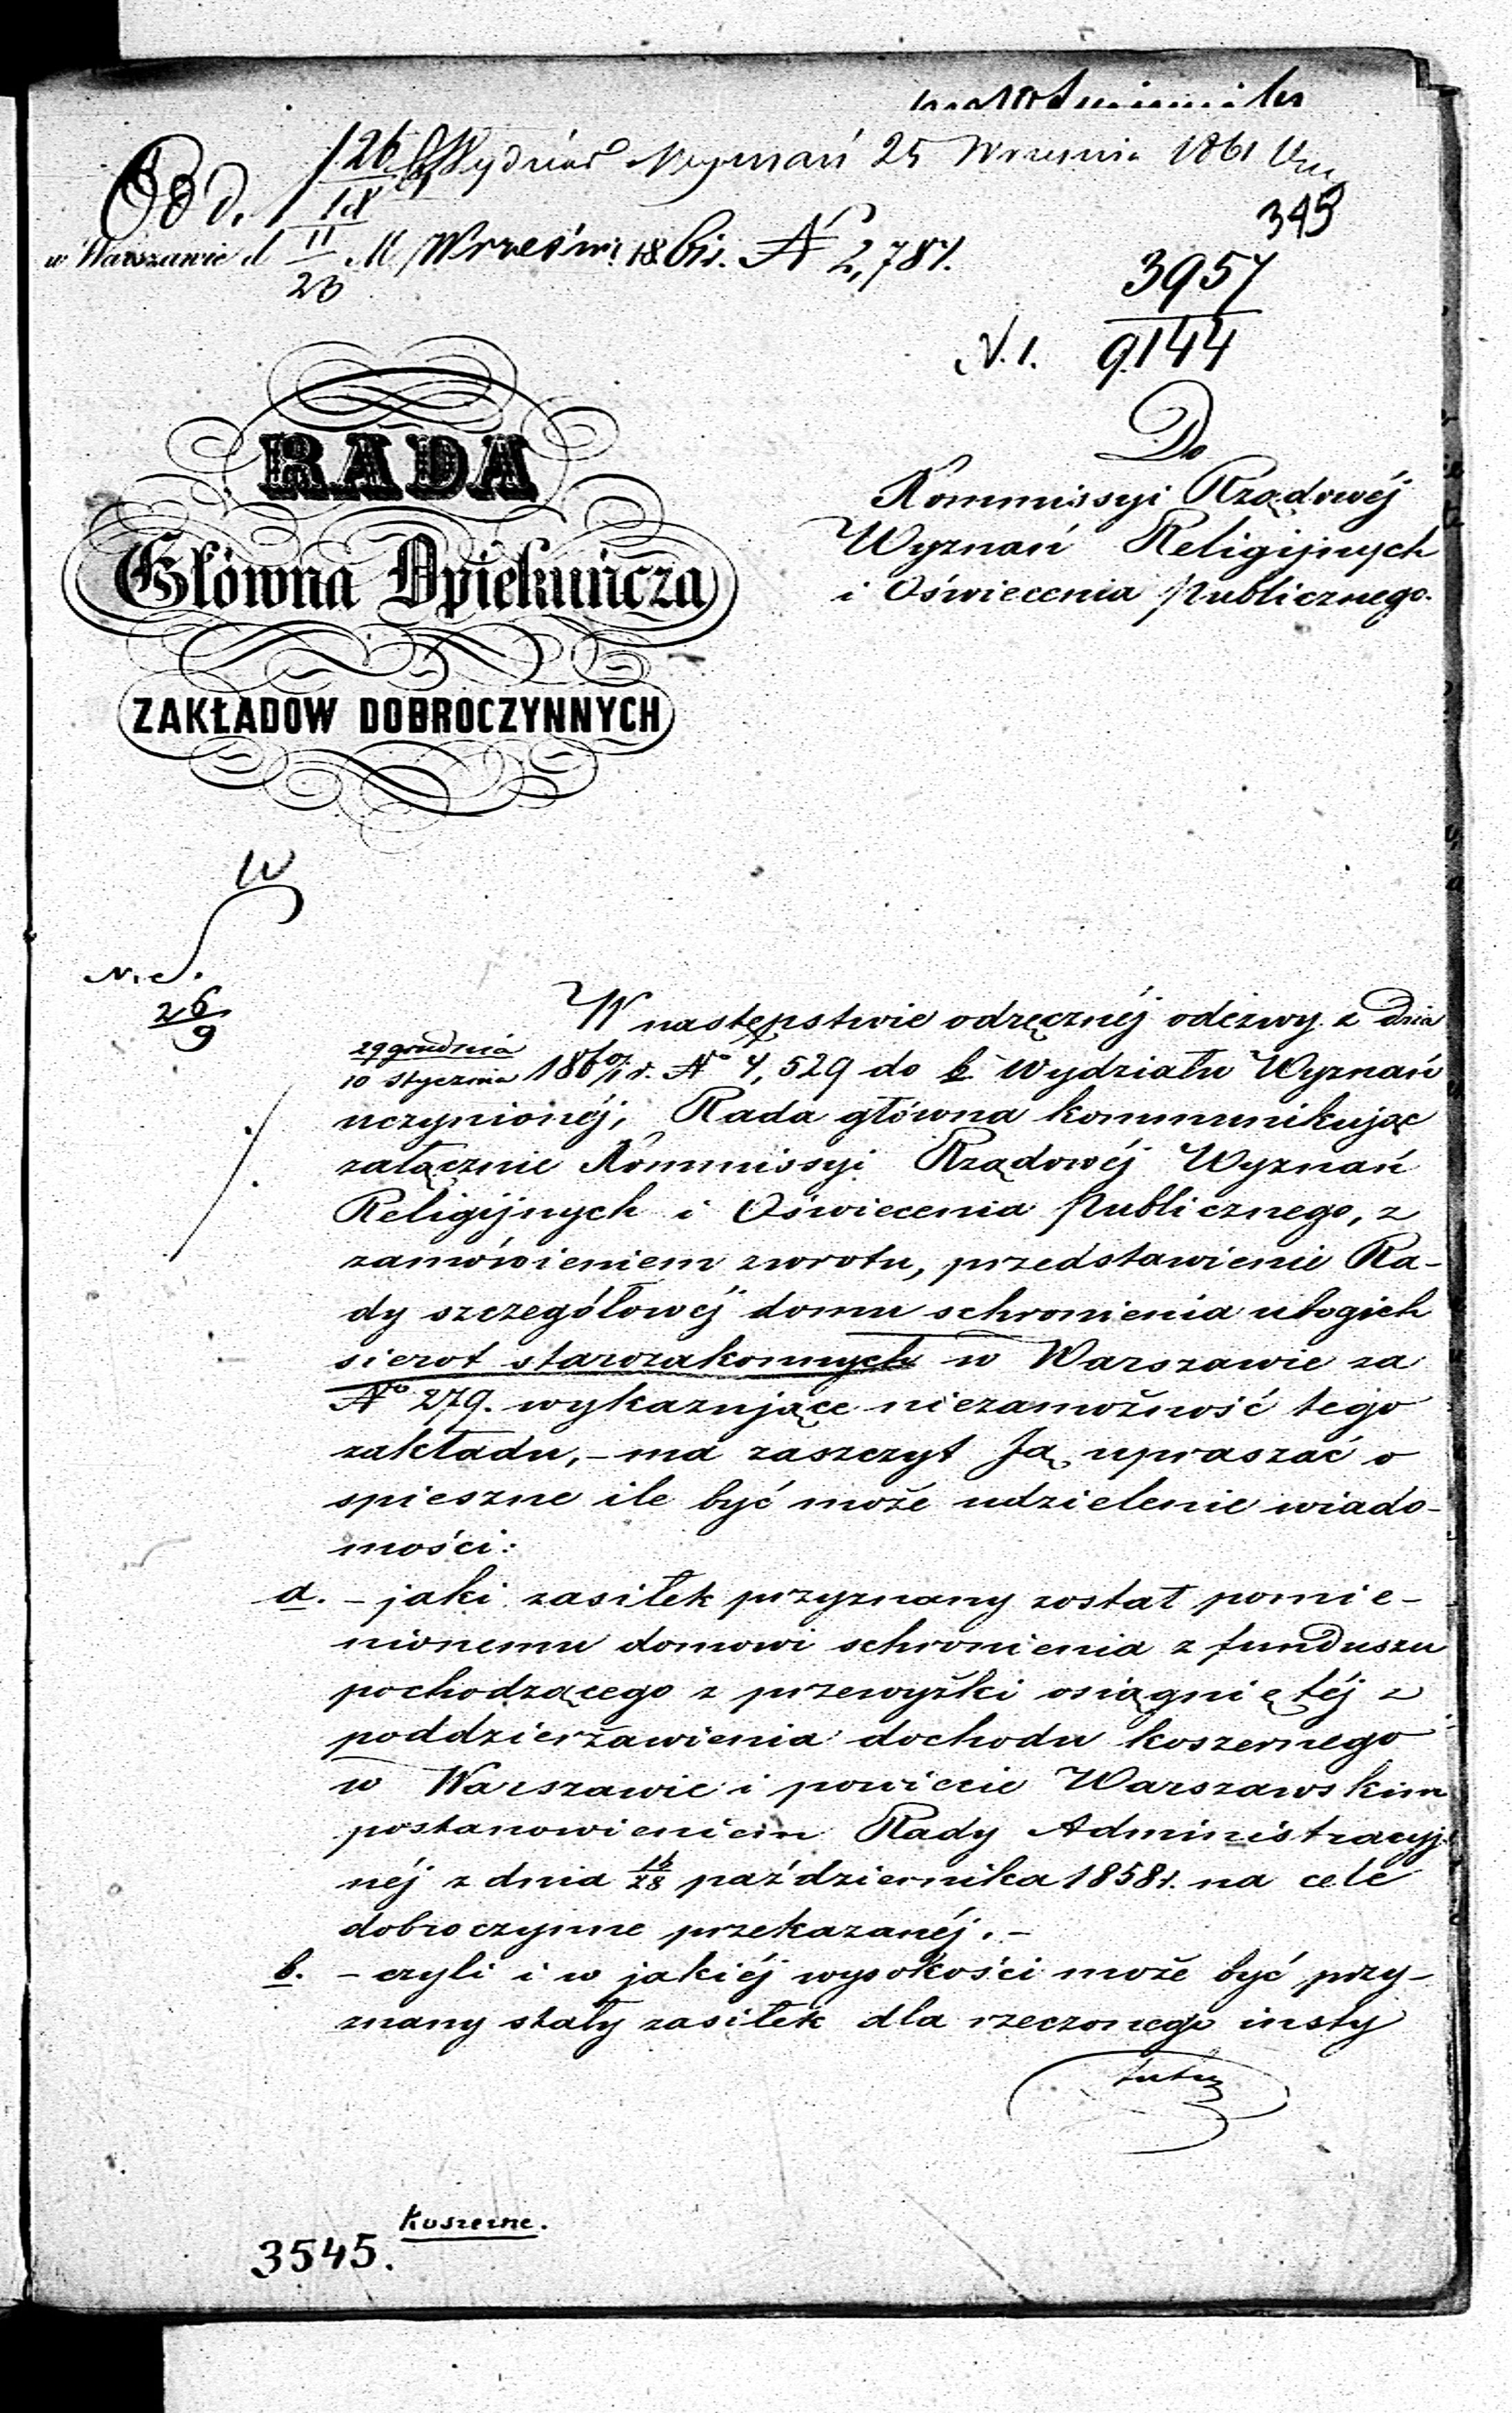 Odd.
126
IX
Wydział Wyznań 25 Wrzesnia 1861
345
w Warszawie d 11/23 M Wrześni 1861. N 2,787.
3957
N. 1. 9144
RADA
Główna Opiekuńcza
ZAKŁADOW DOBROCZYNNYCH
Do
Kommissyi Rządowéj
Wyznań Religijnych
i Oświecenia Publicznego.
26
9
W następstwie odręcznéj odezwy z dnia
29 grudnia
10 stycznia 1860/1 r. No 4,529 do b. Wydziału Wyznań
uczynionéj, Rada główna kommunikując
załącznie Kommissyi Rządowéj Wyznań
Religijnych i Oświecenia Publicznego, z
zamówieniem zwrotu, przedstawienie Ra-
dy szczegółowéj domu schronienia ubogich
sierot starozakonnych w Warszawie za
No 279. wykazujące niezamożność tego
zakładu, - ma zaszczyt Ją upraszać o
spieszne ile być może udzielenie wiado-
mości:
a. - jaki zasiłek przyznany został pomie-
nionemu domowi schronienia z funduszu
pochodzącego z przewyżki osiągniętéj z
poddzierżawienia dochodu koszernego
w Warszawie i powiecie Warszawskim
postanowieniem Rady Administracyj
néj z dnia 16/28 października 1858 r. na cele
dobroczynne przekazanéj. -
b. - czyli i w jakiéj wysokości może być przy-
znany stały zasiłek dla rzeczonego insty
tutu
Koszerne.
3545.